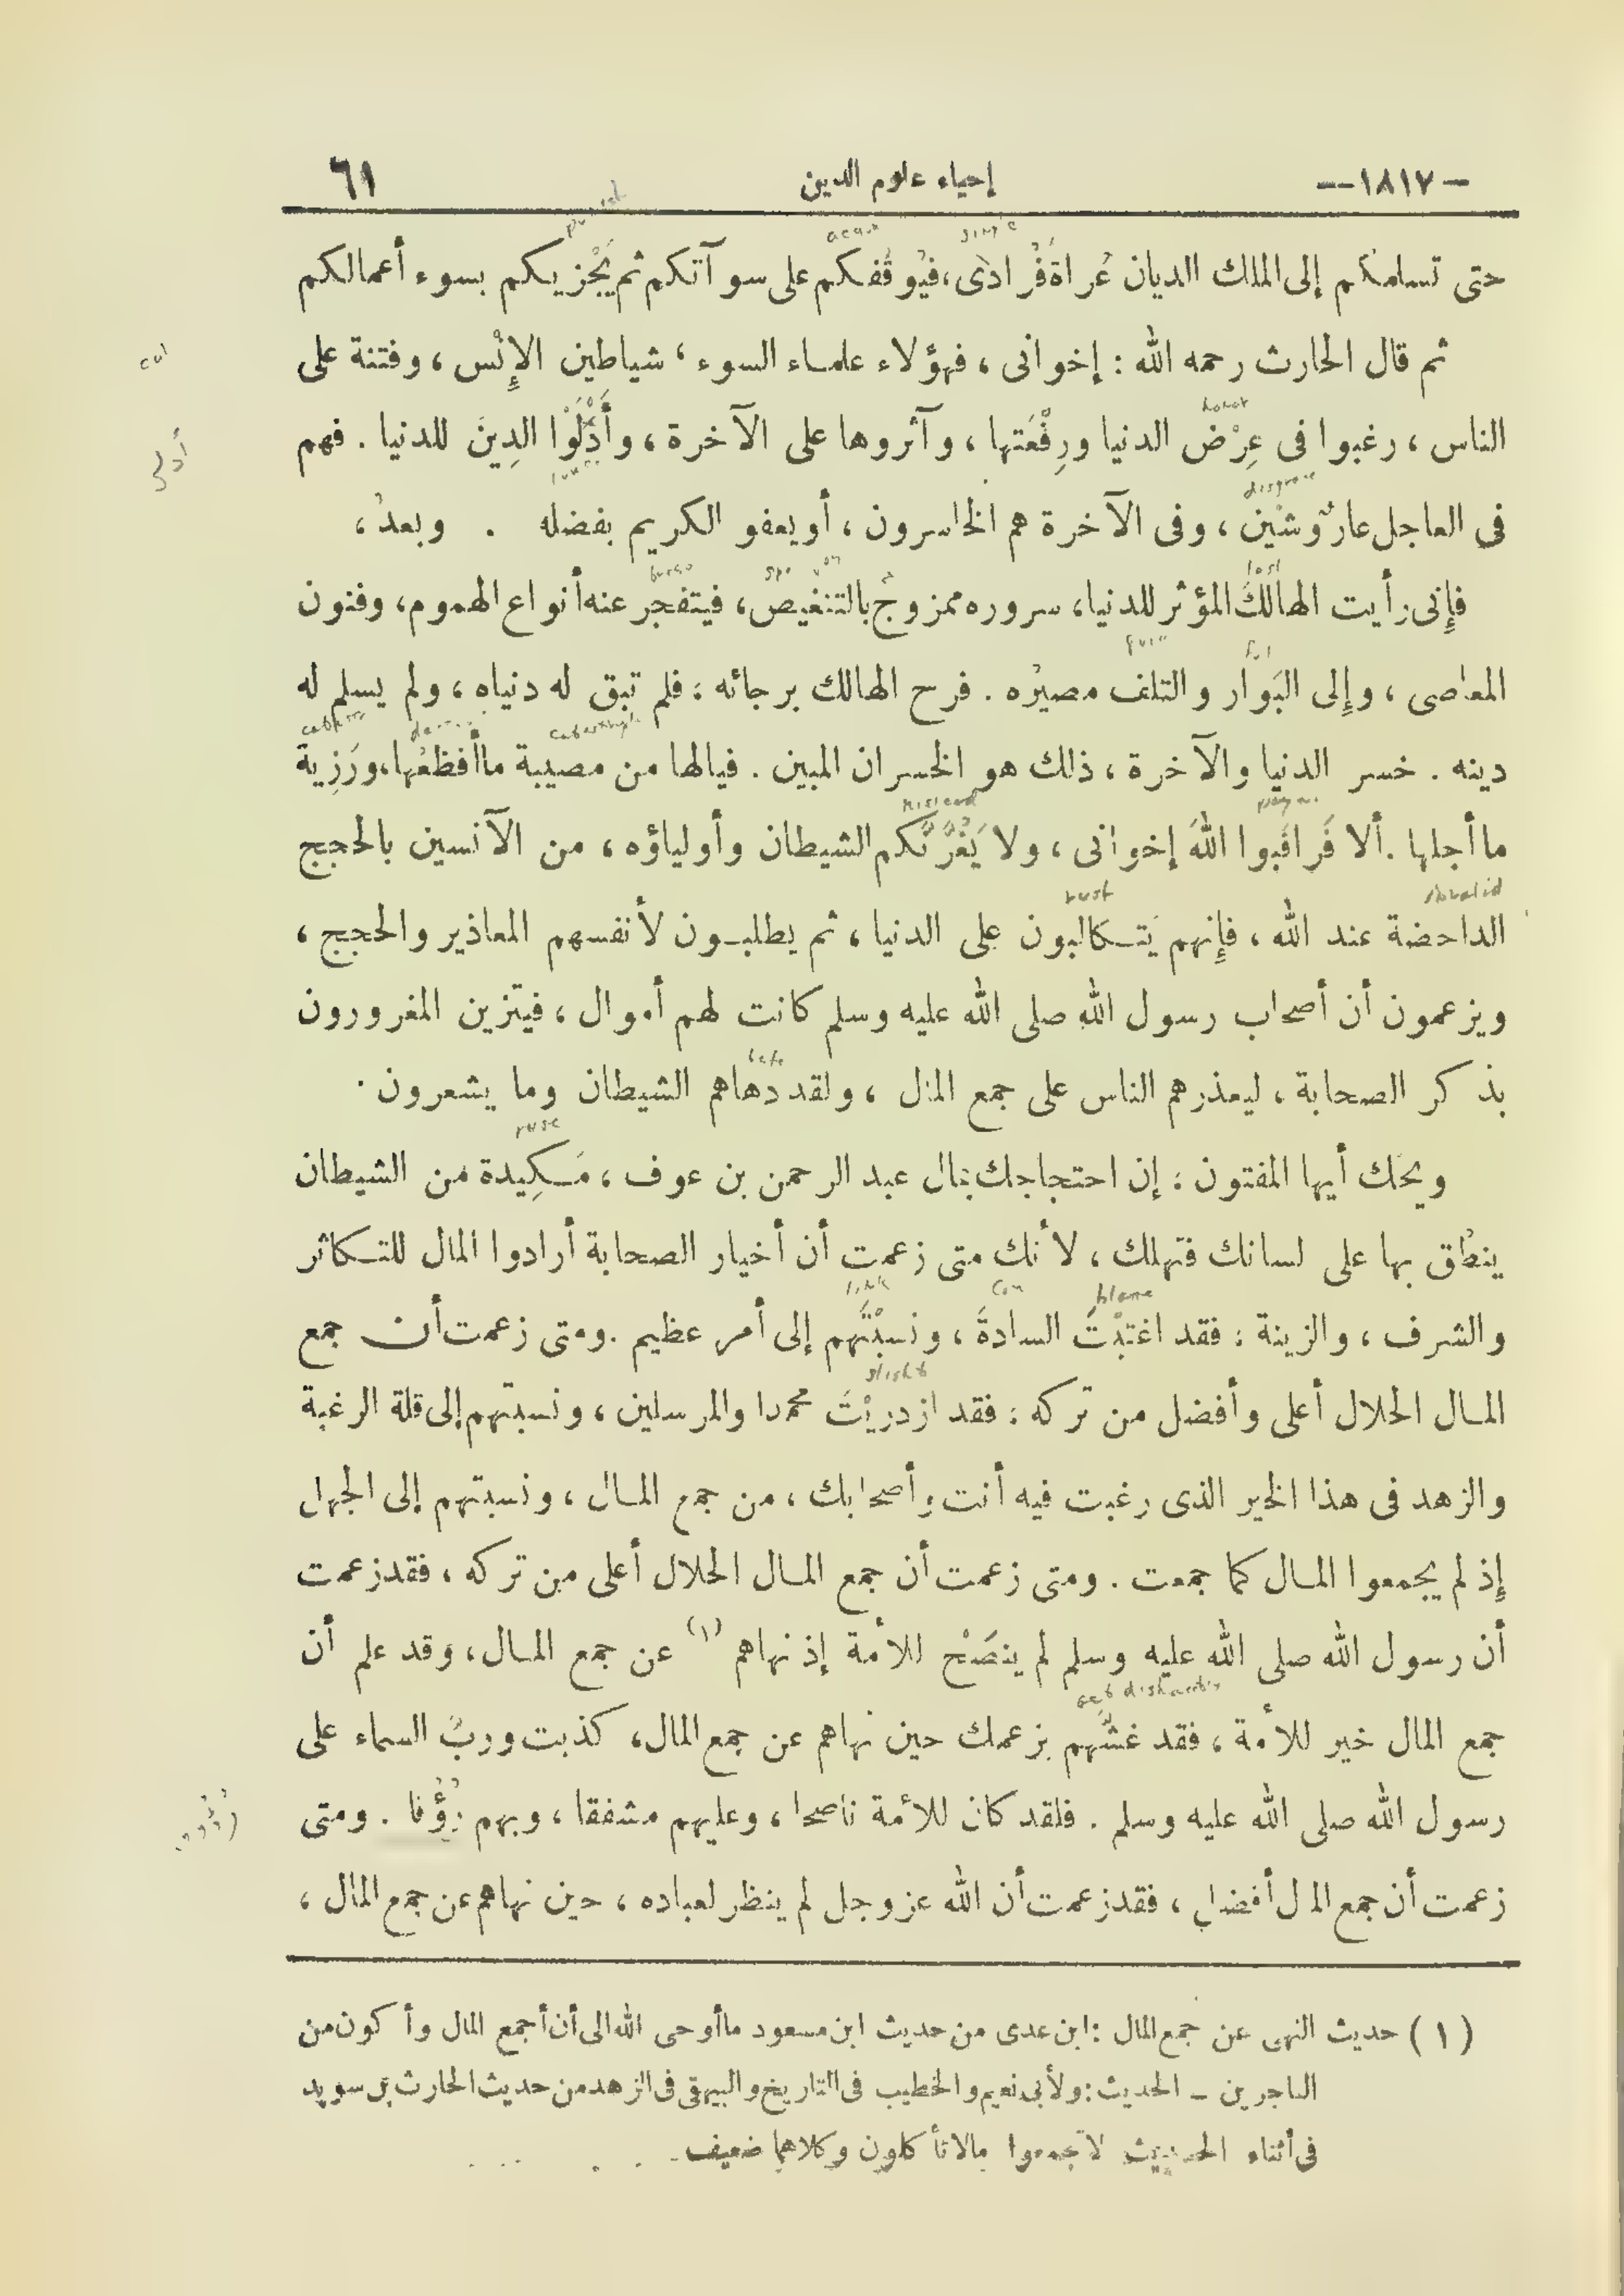 -١٨١٧-- إحياء علوم الدين ٦١
حتى تسامكم إلى الملك الديان عُراةً فُرادَى، فيُوقُفكم على سوآتكم ثم يَجْزيكم بسوء أعمالكم
ثم قال الحارث رحمه الله : إخوانى ، فهؤلاء علماء السوء ، شياطين الإِنْس ، وفتنة على
الناس ، رغبوا فى عِرْض الدنيا ورِفْعَتها ، وآثروها على الآخرة ، وأَذَلّوْا الدِينَ للدنيا . فهم
فى العاجل عارٌ وشَيْن ، وفى الآخرة هم الخاسرون ، أو يعفو الكريم بفضله . وبعدُ ،
فإِنى رأيت الهالكَ المؤثر للدنيا، سروره ممزوجٌ بالتنغيص، فيتفجر عنه أنواع الهموم، وفنون
المعاصى ، وإِلى البَوَار والتلف مصيرُه . فرح الهالك برجائه ؛ فلم تبق له دنياه ، ولم يسلم له
دينه . خسر الدنيا والآخرة ، ذلك هو الخسران المبين . فيالها من مصيبة ماأفظعُها، ورَزِية
ما أجلها . ألا فَراقَبوا اللهَ إخوانى ، ولا يَغُرَّنَّكم الشيطان وأولياؤه ، من الآنسين بالحجج
الداحضة عند الله ، فإِنهم يَتـكالبون على الدنيا ، ثم يطلبـون لأنفسهم المعاذير والحجج ،
ويزعمون أن أصحاب رسول الله صلى الله عليه وسلم كانت لهم أموال ، فيتزين المغرورون
بذكر الصحابة ، ليعذرهم الناس على جمع المال ، ولقد دهاهم الشيطان وما يشعرون .
ويحك أيها المفتون ؛ إن احتجاجك بمال عبد الرحمن بن عوف ، مَـكِيدة من الشيطان
ينطق بها على لسانك فتهلك ، لأنك متى زعمت أن أخيار الصحابة أرادوا المال للتـكاثر
والشرف ، والزينة ؛ فقد اغتَبْتَ السادةَ ، ونسبْتَهم إلى أمر عظيم . ومتى زعمت أن جمع
المـال الحلال أعلى وأفضل من تركه ؛ فقد ازدريْتَ محمدا والمرسلين ، ونسبتهم إلى قلة الرغبة
والزهد فى هذا الخير الذى رغبت فيه أنت وأصحابك ، من جمع المـال ، ونسبتهم إلى الجهل
إِذ لم يجمعوا المـال كما جمعت . ومتى زعمت أن جمع المـال الحلال أعلى من تركه ، فقد زعمت
أن رسول الله صلى الله عليه وسلم لم ينصَحْ للأمة إذ نهاهم (١) عن جمع المـال، وقد علم أن
جمع المال خير للأمة ، فقد غشَّهم بزعمك حين نهاهم عن جمع المال، كذبت وربِّ السماء على
رسول الله صلى الله عليه وسلم . فلقد كان للأمة ناصحا ، وعليهم مشفقا ، وبهم رؤفا . ومتى
زعمت أن جمع المال أفضل ، فقد زعمت أن الله عز وجل لم ينظر لعباده ، حين نهاهم عن جمع المال ،
( ١ ) حديث النهى عن جمع المال : ابن عدى من حديث ابن مسعود ماأوحى الله الى أن أجمع المال وأكون من
التاجرين - الحديث : ولأبى نعيم والخطيب فى التاريخ والبيهقى فى الزهد من حديث الحارث بن سويد
فى أثناء الحديث لاتجمعوا مالا تأكلون وكلاهما ضعيف
honor
disgrace
lost
mislead
invalid
ruse
blame
link
slight